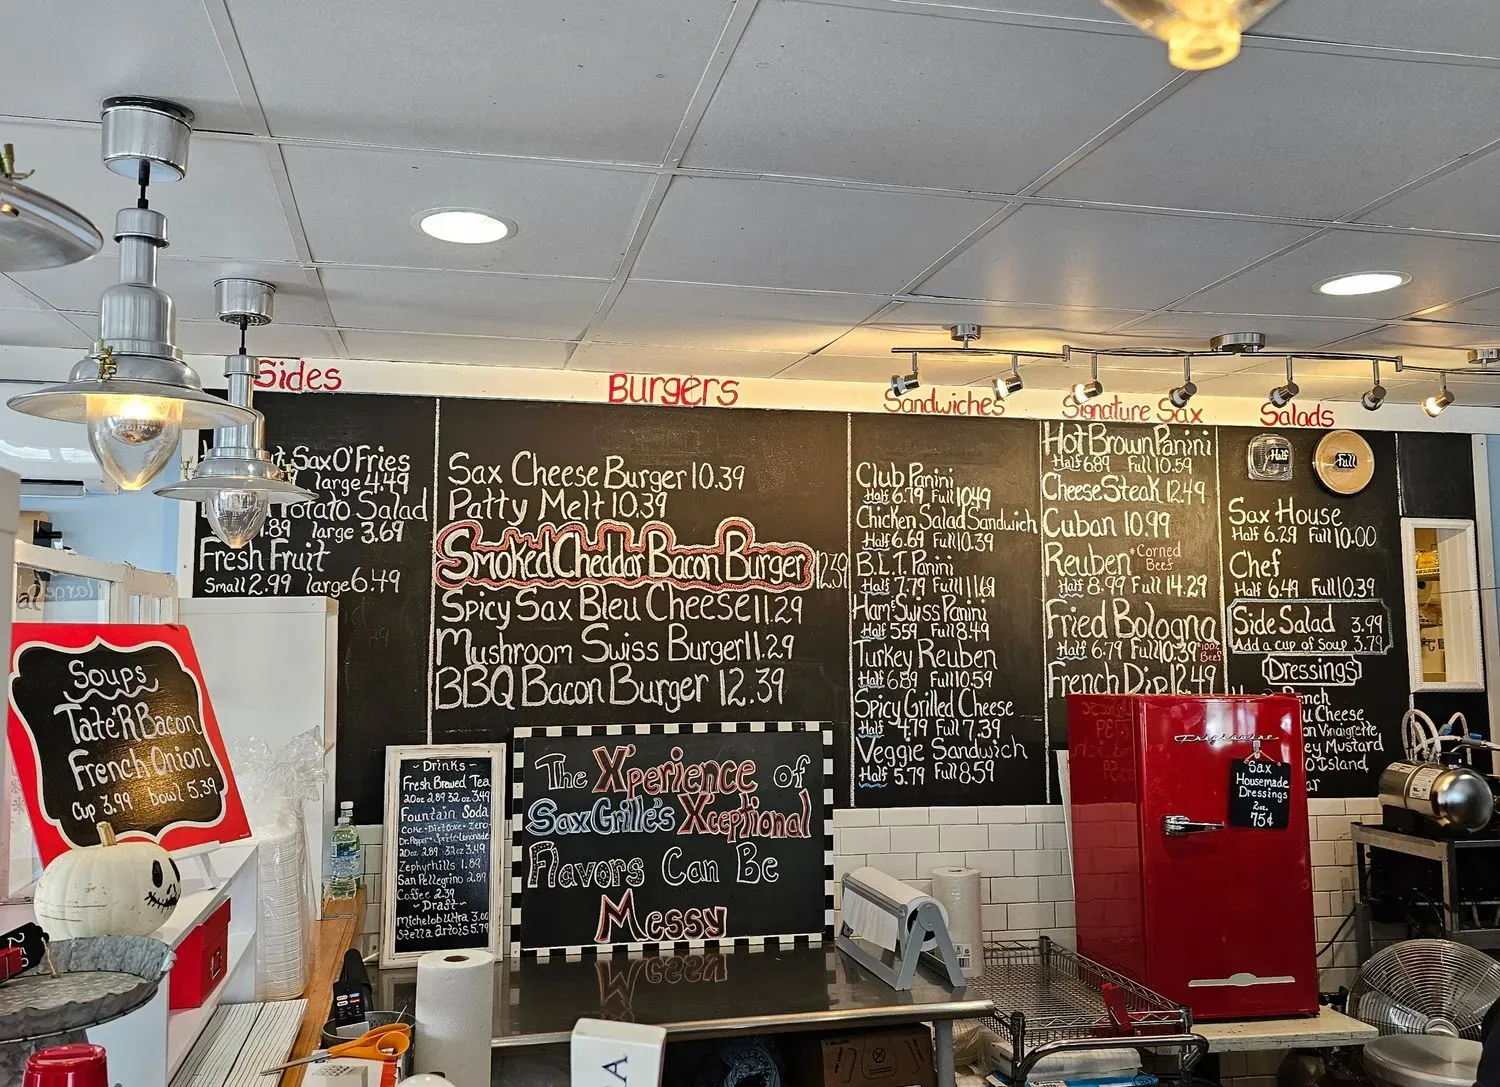 Sides
Sax O'Fries
large 4.49
Potato Salad
.89 large 3.69
Fresh Fruit
Small 2.99 large 6.49
Burgers
Sax Cheese Burger 10.39
Patty Melt 10.39
Smoked Cheddar Bacon Burger 12.39
Spicy Sax Bleu Cheese 11.29
Mushroom Swiss Burger 11.29
BBQ Bacon Burger 12.39
Sandwiches
Club Panini
Half 6.79 Full 10.49
Chicken Salad Sandwich
Half 6.69 Full 10.39
B.L.T. Panini
Half 7.79 Full 11.69
Ham & Swiss Panini
Half 5.59 Full 8.49
Turkey Reuben
Half 6.89 Full 10.59
Spicy Grilled Cheese
Half 4.79 Full 7.39
Veggie Sandwich
Half 5.79 Full 8.59
Signature Sax
Hot Brown Panini
Half 6.89 Full 10.59
Cheese Steak 12.49
Cuban 10.99
Reuben *Corned Beef
Half 8.99 Full 14.29
Fried Bologna
Half 6.79 Full 10.39 *100% Beef
French Dip 12.49
Salads
Half
Full
Sax House
Half 6.29 Full 10.00
Chef
Half 6.49 Full 10.39
Side Salad 3.99
Add a cup of Soup 3.79
Dressings
Soups
Tate'R Bacon
French Onion
Cup 3.99 bowl 5.39
~Drinks~
Fresh Brewed Tea
20oz 2.89 32oz 3.49
Fountain Soda
Coke - Diet Coke - Zero
Dr. Pepper - Sprite - Lemonade
20oz 2.89 32oz 3.49
Zephyrhills 1.89
San Pellegrino 2.89
Coffee 2.39
~Draft~
Michelob Ultra 3.00
Stella Artois 5.79
The Xperience of
Sax Grille's Xceptional
Flavors Can Be
Messy
Frigidaire
Sax
Homemade
Dressings
2oz.
75¢